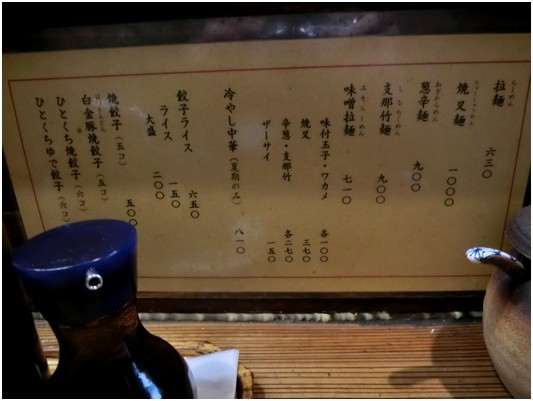 拉麺 六三〇
らーめん
焼叉麺 一〇〇〇
葱辛麺 九〇〇
支那竹麺 九〇〇
味噌拉麺 七一〇
味付玉子・ワカメ 各一〇〇
焼叉 三七〇
辛葱・支那竹 各二七〇
ザーサイ 一五〇
冷やし中華(夏期のみ) 八一〇
餃子ライス 六五〇
ライス 一五〇
大盛 二〇〇
焼餃子(五コ) 五〇〇
白金豚焼餃子(五コ)
ひとくち焼餃子(六コ)
ひとくちゆで餃子(六コ)